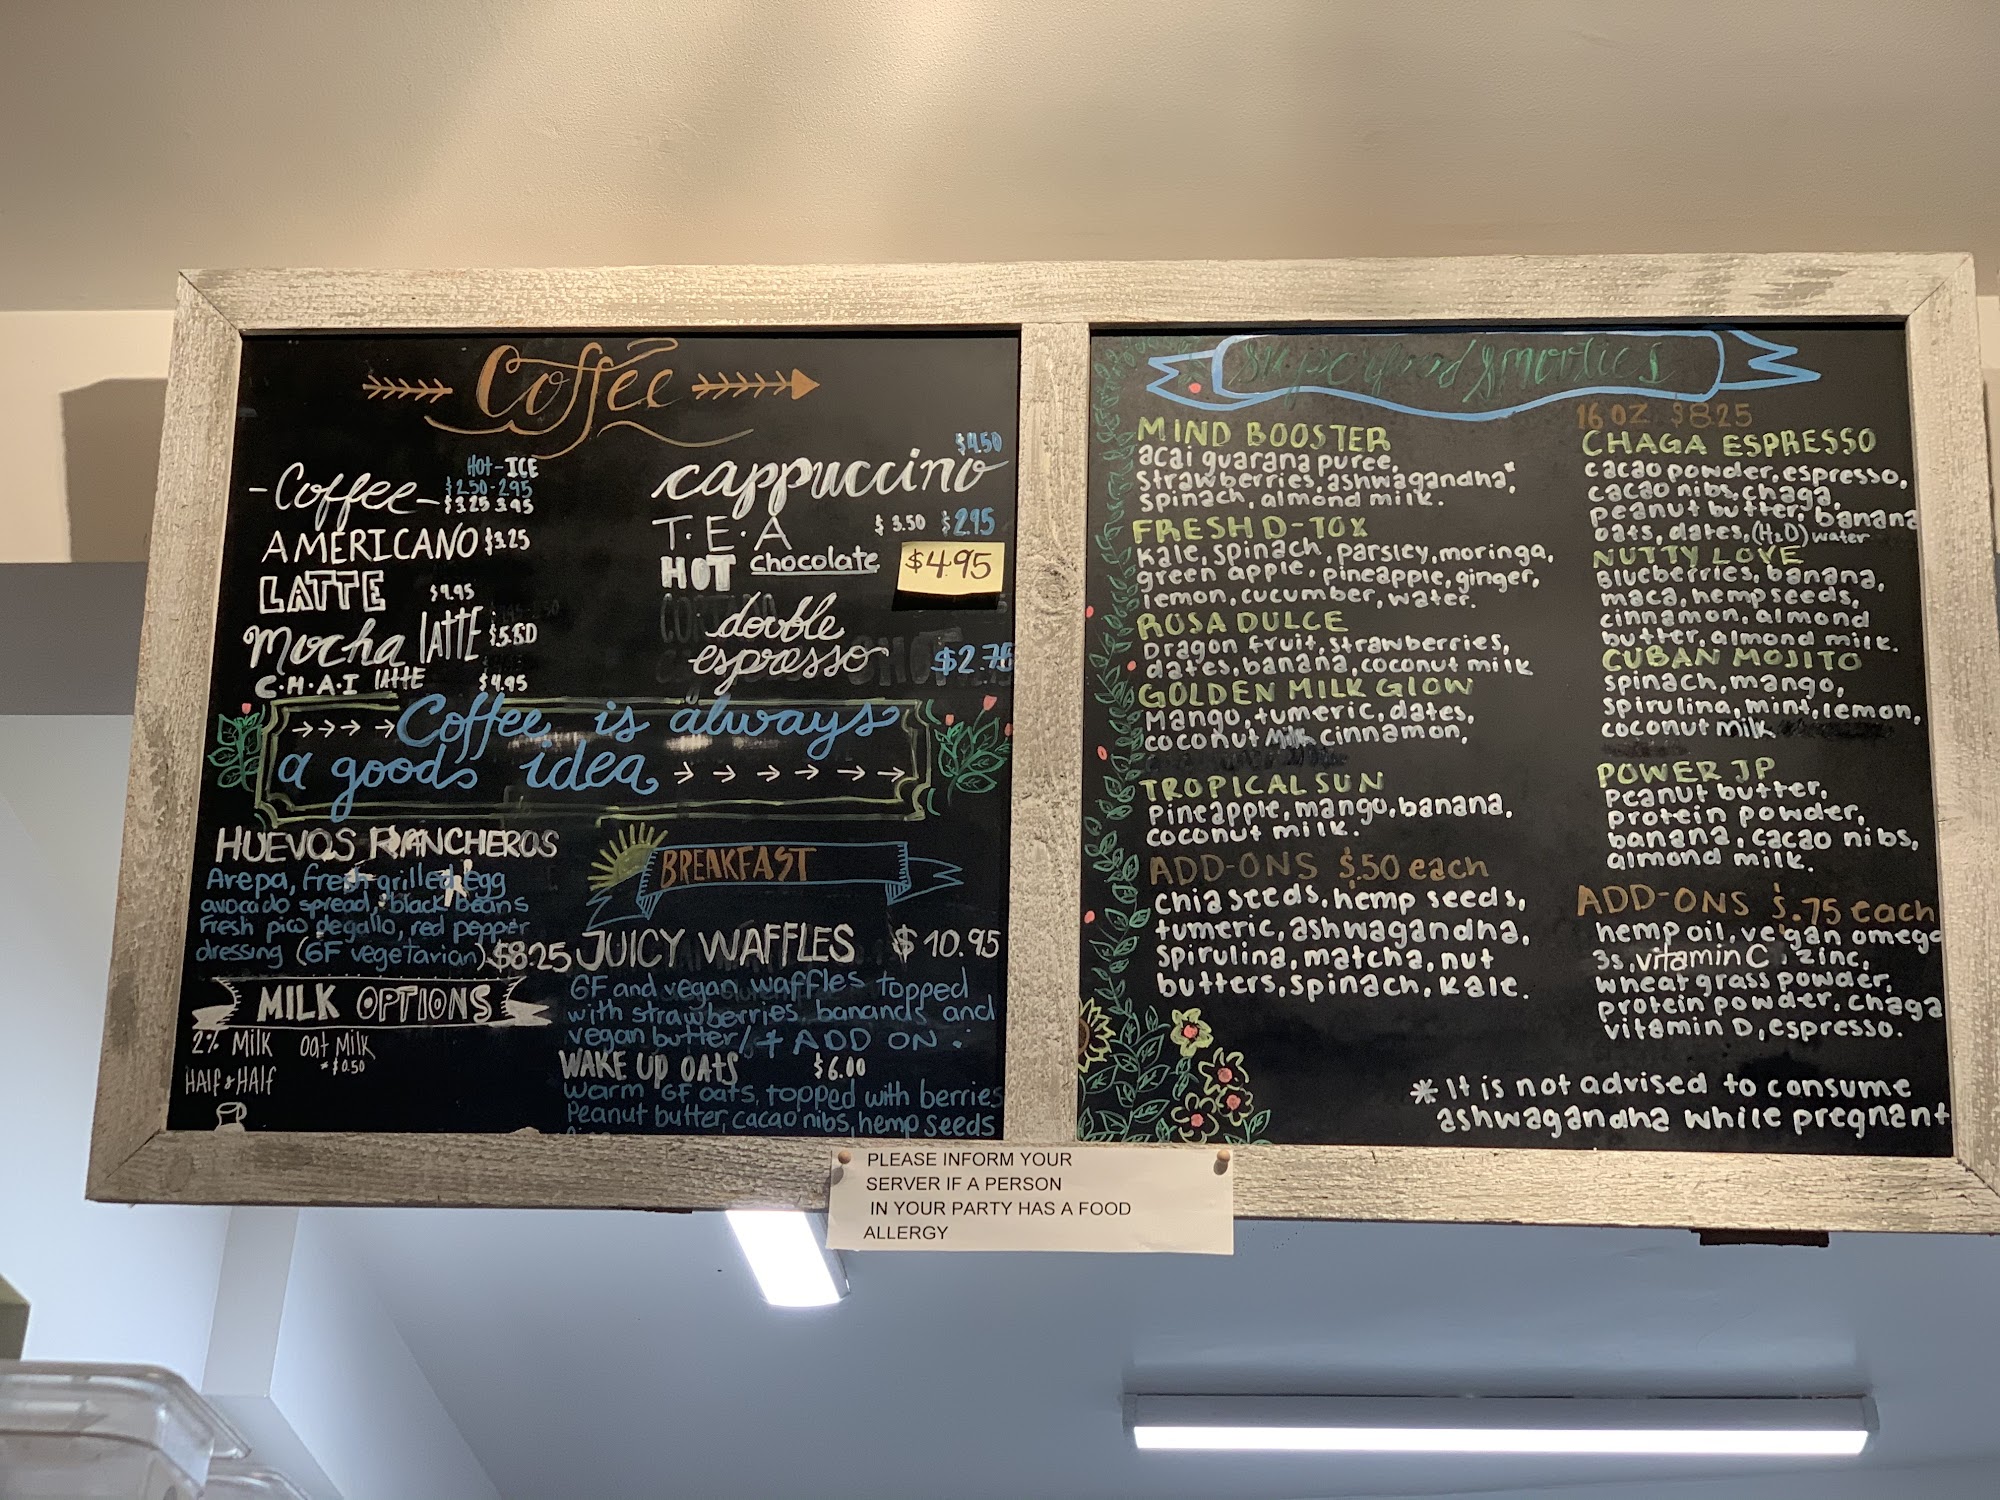 Coffee
HOT-ICE
- Coffee - $2.50-2.95
$3.25 3.95
AMERICANO $3.25
LATTE $4.95
Mocha LATTE $5.50
C.H.A.I LATTE $4.95
$4.50
cappuccino
T.E.A $3.50 $2.95
HOT chocolate $4.95
double
espresso $2.75
Coffee is always
a good idea
HUEVOS RANCHEROS
Arepa, fresh grilled egg
avocado spread, black beans
Fresh pico de gallo, red pepper
dressing (GF vegetarian) $8.25
MILK OPTIONS
2% MILK oat Milk
* $0.50
HALF & HALF
BREAKFAST
JUICY WAFFLES $10.95
GF and vegan waffles topped
with strawberries, bananas and
vegan butter/+ ADD ON:
WAKE UP OATS $6.00
warm GF oats, topped with berries
Peanut butter, cacao nibs, hemp seeds
Superfood Smoothies
16 OZ $8.25
MIND BOOSTER
acai guarana puree,
strawberries, ashwagandha*,
spinach, almond milk.
FRESH D-TOX
kale, spinach, parsley, moringa,
green apple, pineapple, ginger,
lemon, cucumber, water.
ROSA DULCE
Dragon fruit, strawberries,
dates, banana, coconut milk
GOLDEN MILK GLOW
Mango, tumeric, dates,
coconut milk cinnamon,
TROPICAL SUN
Pineapple, mango, banana,
coconut milk.
ADD-ONS $.50 each
chia seeds, hemp seeds,
tumeric, ashwagandha,
spirulina, matcha, nut
butters, spinach, kale.
CHAGA ESPRESSO
cacao powder, espresso,
cacao nibs, chaga,
peanut butter, banana
oats, dates, (H2O) water
NUTTY LOVE
Blueberries, banana,
maca, hemp seeds,
cinnamon, almond
butter, almond milk.
CUBAN MOJITO
spinach, mango,
spirulina, mint, lemon,
coconut milk
POWER JP
peanut butter,
protein powder,
banana, cacao nibs,
almond milk.
ADD-ONS $.75 each
hemp oil, vegan omega
3s, vitamin C, zinc,
wheat grass powder,
protein powder, chaga
vitamin D, espresso.
* It is not advised to consume
ashwagandha while pregnant
PLEASE INFORM YOUR
SERVER IF A PERSON
IN YOUR PARTY HAS A FOOD
ALLERGY